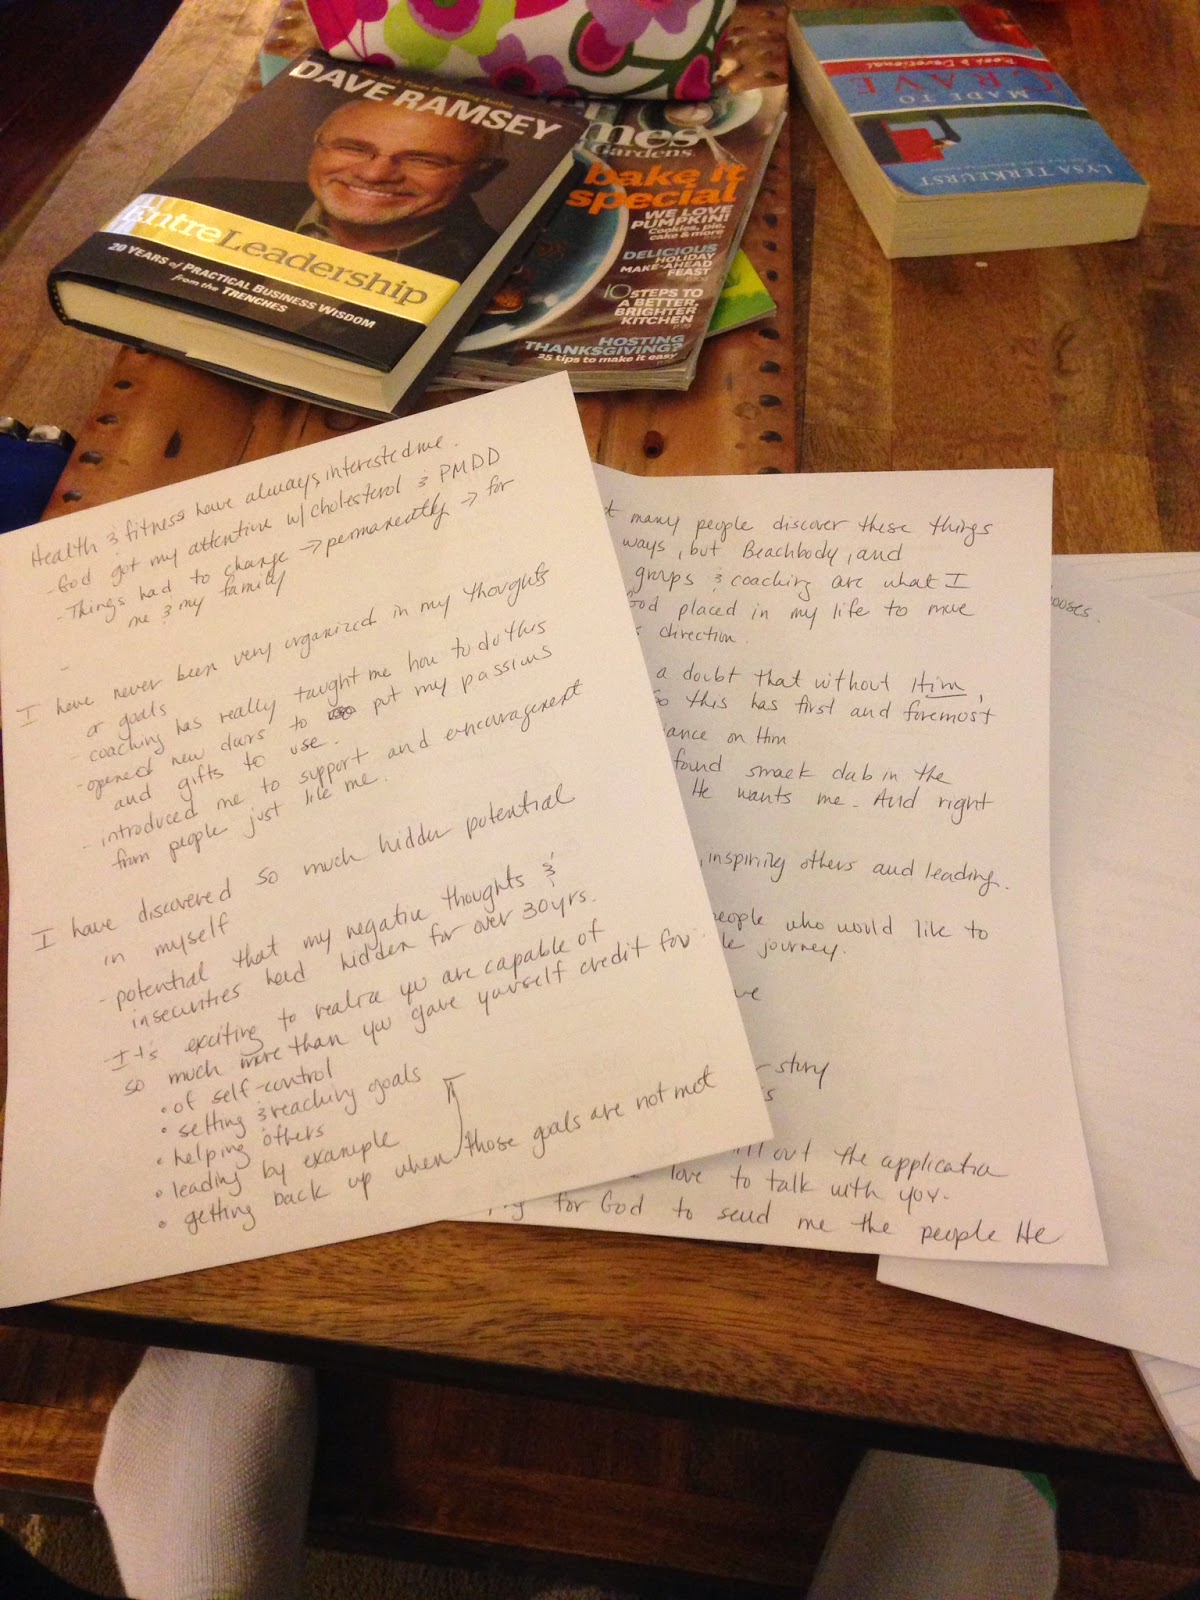 DAVE RAMSEY
EntreLeadership
20 YEARS of PRACTICAL BUSINESS WISDOM
from the TRENCHES
mes
Gardens
bake it
special
WE LOVE
PUMPKIN!
Cookies, pie,
cake & more
DELICIOUS
HOLIDAY
MAKE-AHEAD
FEAST
10 STEPS TO
A BETTER,
BRIGHTER
KITCHEN
HOSTING
THANKSGIVING?
25 tips to make it easy
Book & Devotional
MADE TO
CRAVE
LYSA TERKEURST
Health & fitness have always interested me.
- God got my attention w/ cholesterol & PMDD
- Things had to change → permanently → for
me & my family
-
I have never been very organized in my thoughts
or goals
- coaching has really taught me how to do this
- opened new doors to put my passions
and gifts to use.
- introduced me to support and encouragement
from people just like me.
I have discovered so much hidden potential
in myself
- potential that my negative thoughts &
insecurities had hidden for over 30yrs.
- It's exciting to realize you are capable of
so much more than you gave yourself credit for
• of self-control
• setting & reaching goals
• helping others
• leading by example
• getting back up when those goals are not met
t many people discover these things
ways, but Beachbody, and
groups & coaching are what I
God placed in my life to move
s direction.
a doubt that without Him,
So this has first and foremost
iance on Him
found smack dab in the
He wants me. And right
, inspiring others and leading.
people who would like to
le journey.
ve
r story
s
ill out the application
love to talk with you.
for God to send me the people He
ooses.